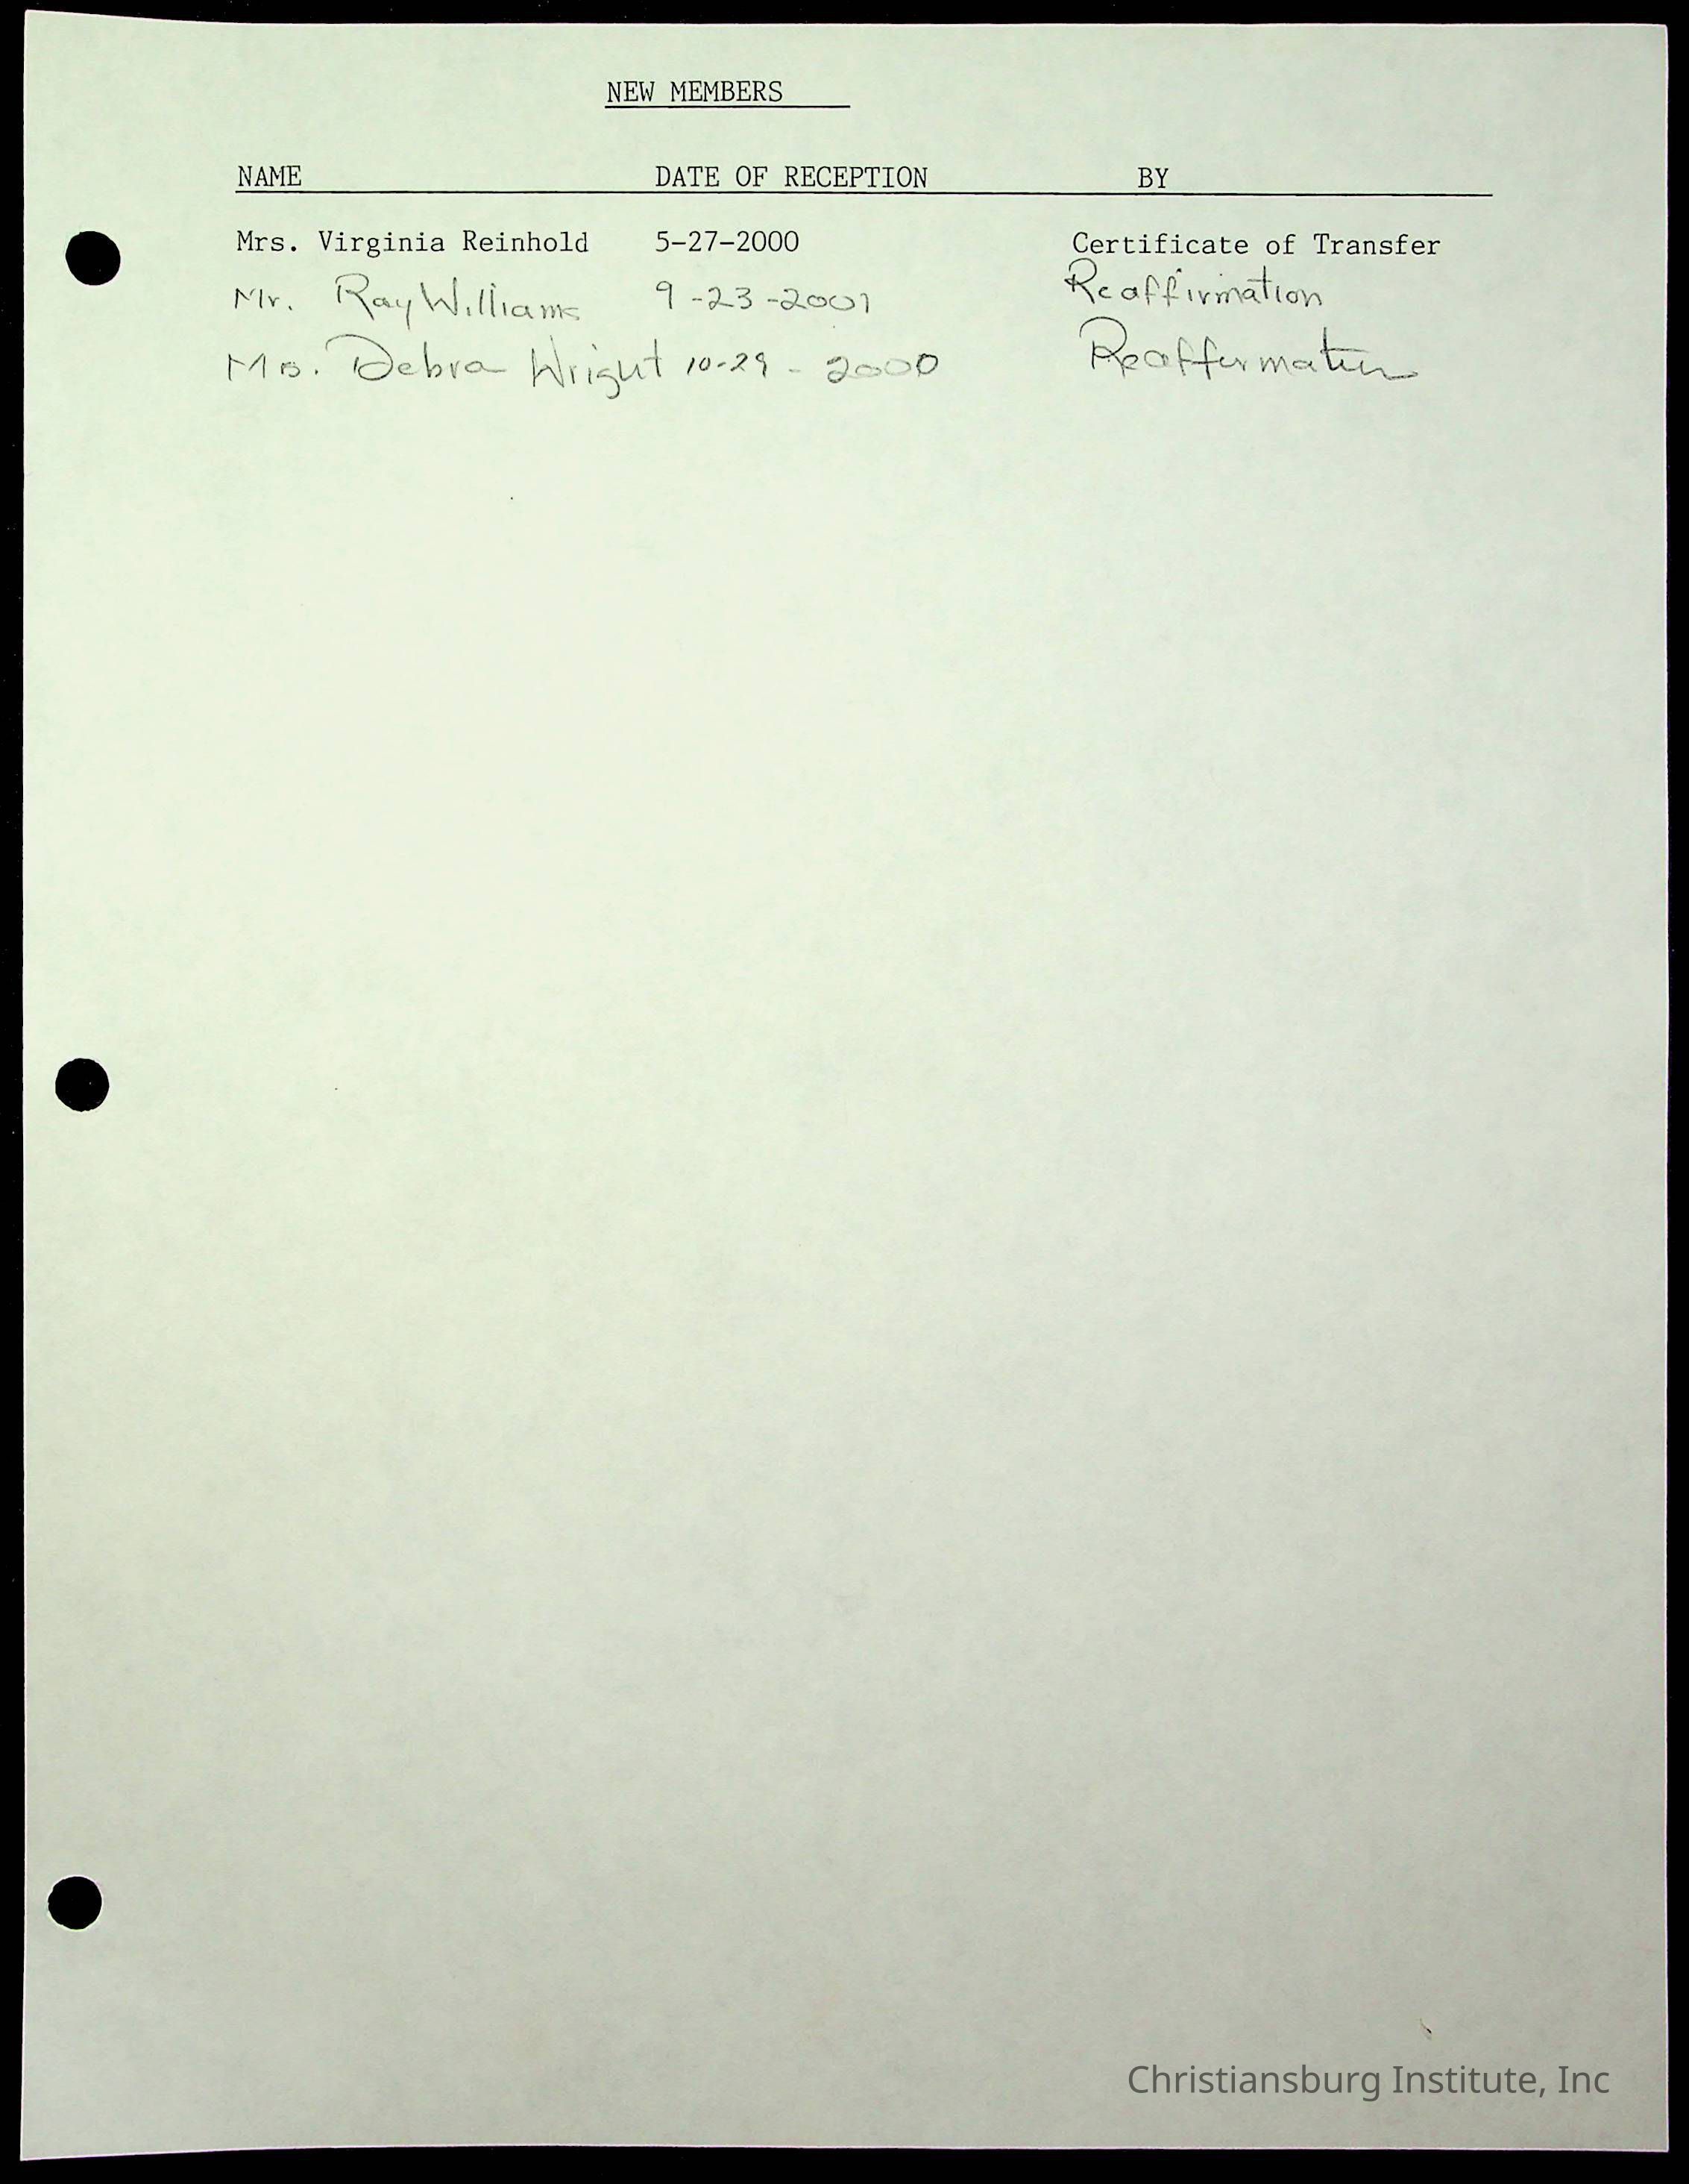 NEW MEMBERS
NAME DATE OF RECEPTION BY
Mrs. Virginia Reinhold 5-27-2000 Certificate of Transfer
Mr. Ray Williams 9-23-2001 Reaffirmation
Ms. Debra Wright 10-29-2000 Reaffirmation
Christiansburg Institute, Inc